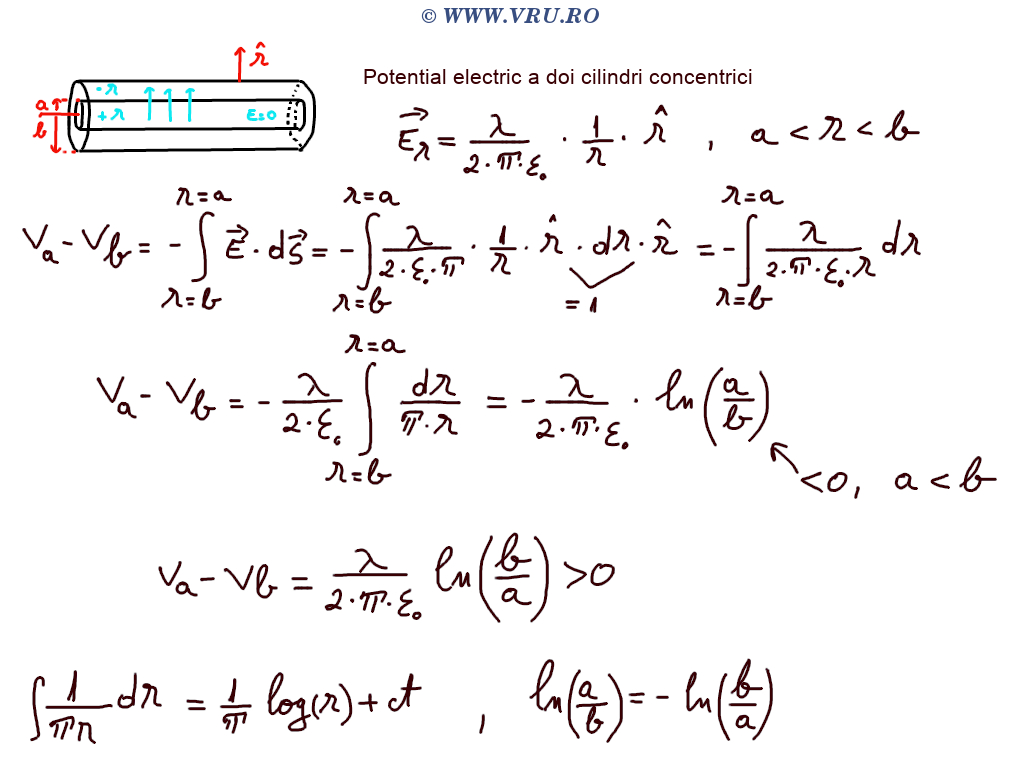 © WWW.VRU.RO
Potential electric a doi cilindri concentrici
r̂
a
b
-λ
+λ
E=0
E⃗ᵣ = λ/(2·π·ε₀) · 1/r · r̂ , a < r < b
Va - Vb = - ∫_{r=b}^{r=a} E⃗ · ds⃗ = - ∫_{r=b}^{r=a} λ/(2·ε₀·π) · 1/r · r̂ · dr · r̂ = - ∫_{r=b}^{r=a} λ/(2·π·ε₀·r) dr
= 1
Va - Vb = - λ/(2·ε₀) ∫_{r=b}^{r=a} dr/(π·r) = - λ/(2·π·ε₀) · ln(a/b)
<0, a < b
Va - Vb = λ/(2·π·ε₀) ln(b/a) > 0
∫ 1/(πr) dr = 1/π log(r) + ct , ln(a/b) = - ln(b/a)